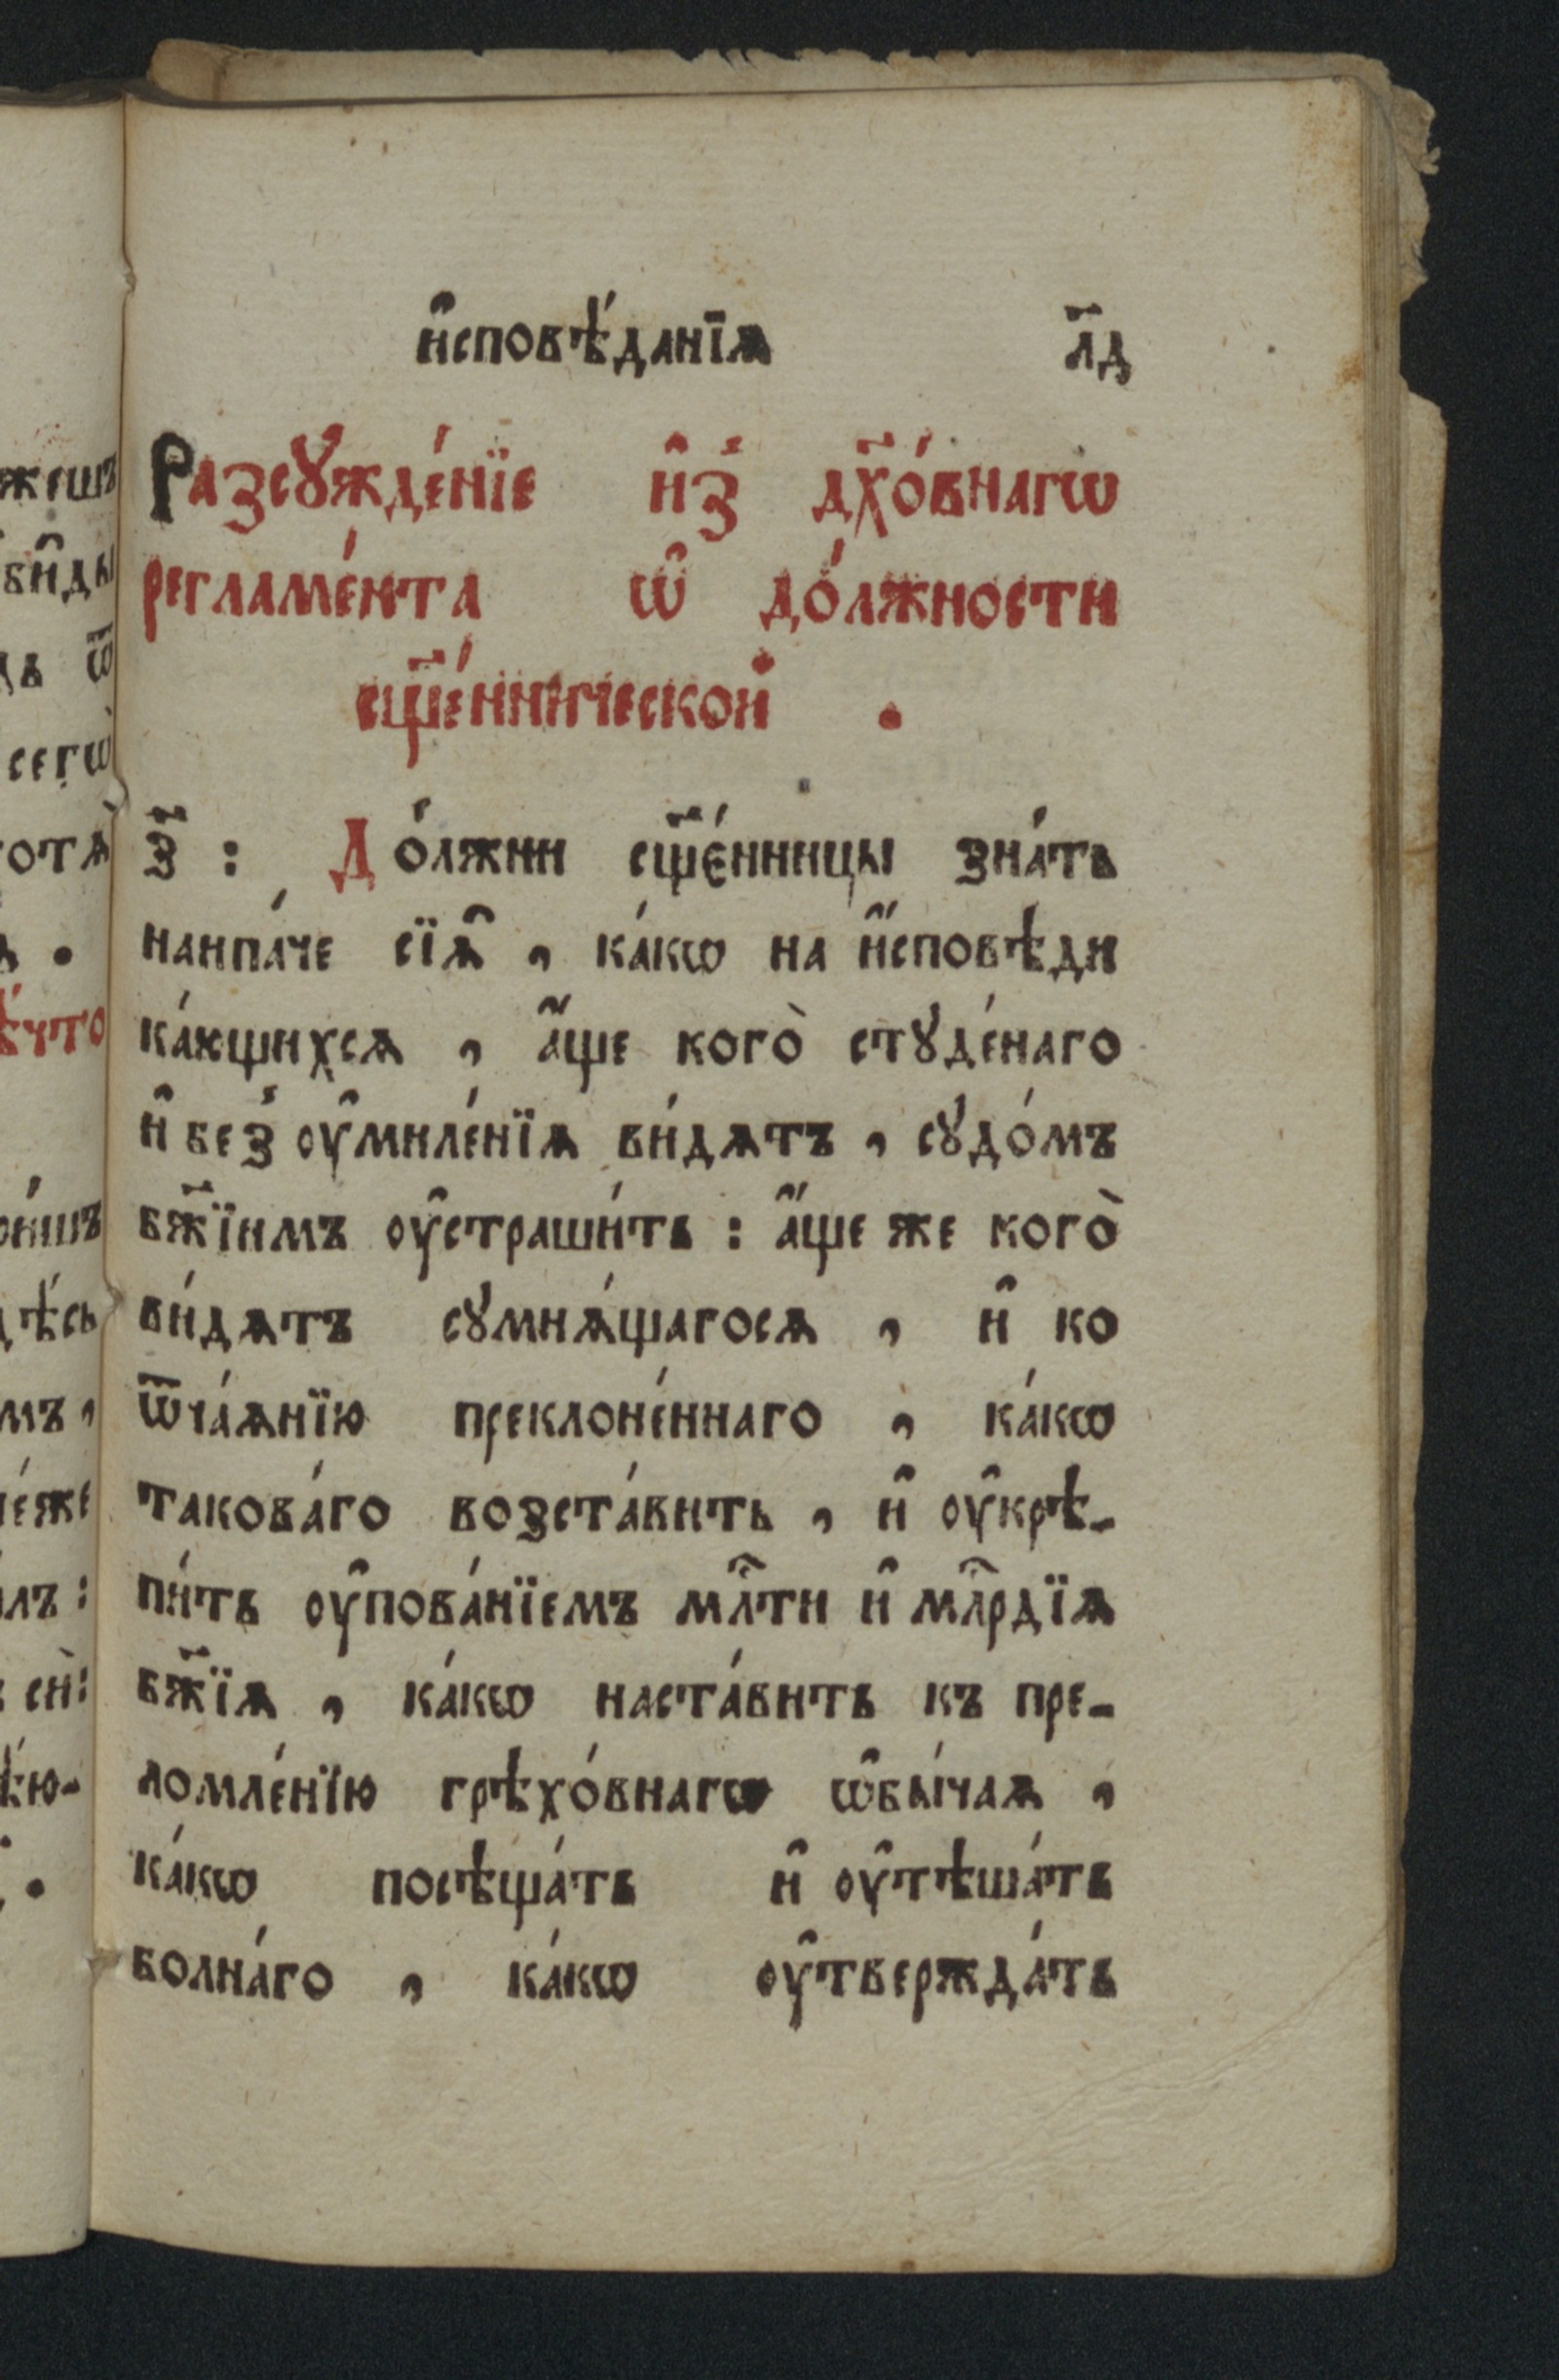 и҆сповѣ́данїѧ л҃д
Разсꙋжде́нїе и҆з̾ дх҃о́внагѡ
регламе́нта ѡ҆ до́лжности
сщ҃е́нническои̾ .
з҃ : До́лжни сщ҃є́нницы зна́ть
наипа́че сїѧ҆ , ка́кѡ на и҆́сповѣди
ка́ющихсѧ , а҆́ще кого̀ стꙋде́наго
и҆ без̾ ᲂу҆миле́нїѧ ви́дѧтъ , сꙋдо́мъ
бж҃їимъ ᲂу҆страши́ть : а҆́ще же кого̀
ви́дѧтъ сꙋмнѧ́щагосѧ , и҆ ко
ѿча́ѧнїю преклоне́ннаго , ка́кѡ
такова́го возста́вить , и҆ ᲂу҆крѣ-
пи́ть ᲂу҆пова́нїемъ мл҇ти и҆ мл҇рдїѧ
бж҃їѧ , ка́кѡ наста́вить къ пре-
ломле́нїю грѣхо́внагѡ ѡ҆бы́чаѧ ,
ка́кѡ посѣща́ть и҆ ᲂу҆тѣша́ть
болна́го , ка́кѡ ᲂу҆твержда́ть